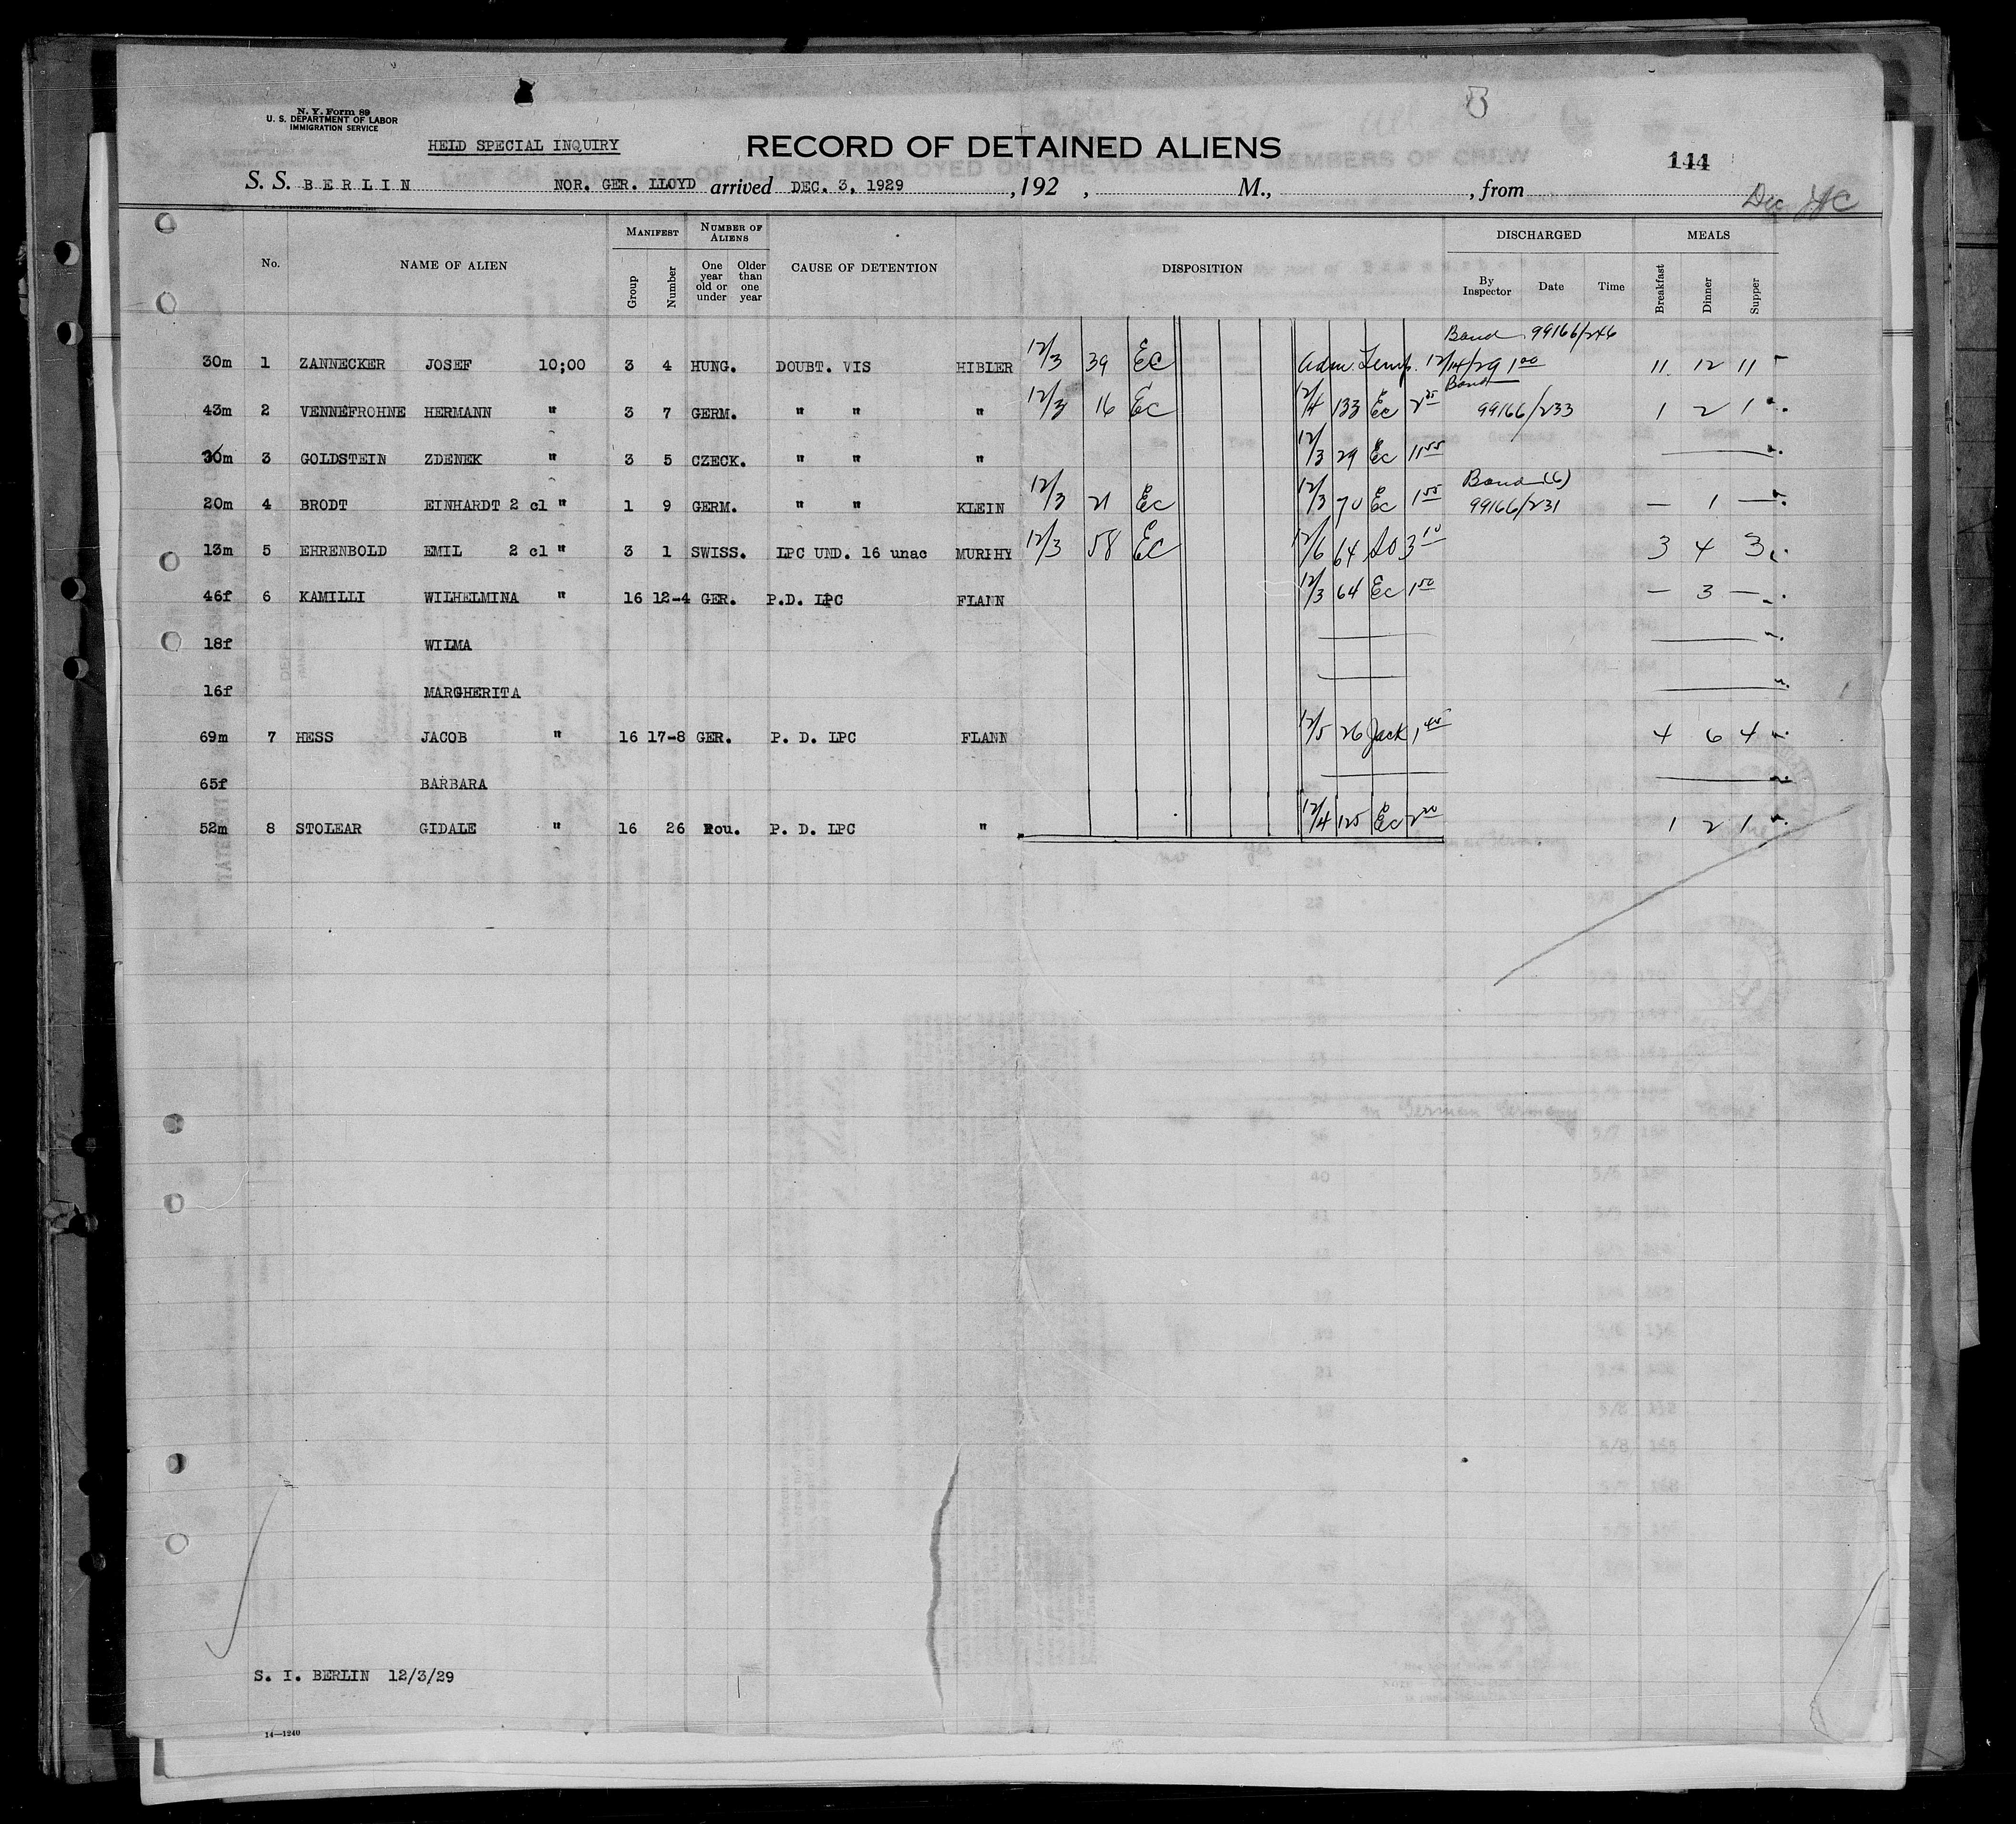 N. Y. Form 89
U. S. DEPARTMENT OF LABOR
IMMIGRATION SERVICE
HELD SPECIAL INQUIRY
RECORD OF DETAINED ALIENS
144
S. S. BERLIN NOR. GER. LLOYD arrived DEC. 3, 1929, 192 , M., , from
Dec
No. NAME OF ALIEN MANIFEST Group Number NUMBER OF ALIENS One year old or under Older than one year CAUSE OF DETENTION DISPOSITION DISCHARGED By Inspector Date Time MEALS Breakfast Dinner Supper
Bond 99166/246
30m 1 ZANNECKER JOSEF 10;00 3 4 HUNG. DOUBT. VIS HIBLER 12/3 39 EC Adm. Temp. 12/14/29 1 00 11 12 11
Bond
43m 2 VENNEFROHNE HERMANN " 3 7 GERM. " " " 12/3 16 EC 12/4 133 EC 2 25 99166/233 1 2 1
30m 3 GOLDSTEIN ZDENEK " 3 5 CZECK. " " " 12/3 29 EC 11 55
Bond (6)
20m 4 BRODT EINHARDT 2 cl " 1 9 GERM. " " KLEIN 12/3 21 EC 12/3 70 EC 1 55 99166/231 — 1 —
13m 5 EHRENBOLD EMIL 2 cl " 3 1 SWISS. LPC UND. 16 unac MURIHY 12/3 58 EC 12/6 64 3 10 3 4 3
46f 6 KAMILLI WILHELMINA " 16 12-4 GER. P.D. LPC FLANN 12/3 64 EC 1 50 — 3 —
18f WILMA
16f MARGHERITA
69m 7 HESS JACOB " 16 17-8 GER. P. D. LPC FLANN 12/5 26 Jack 1 45 4 6 4
65f BARBARA
52m 8 STOLEAR GIDALE " 16 26 Rou. P. D. LPC " 12/4 125 EC 2 20 1 2 1
S. I. BERLIN 12/3/29
14—1240